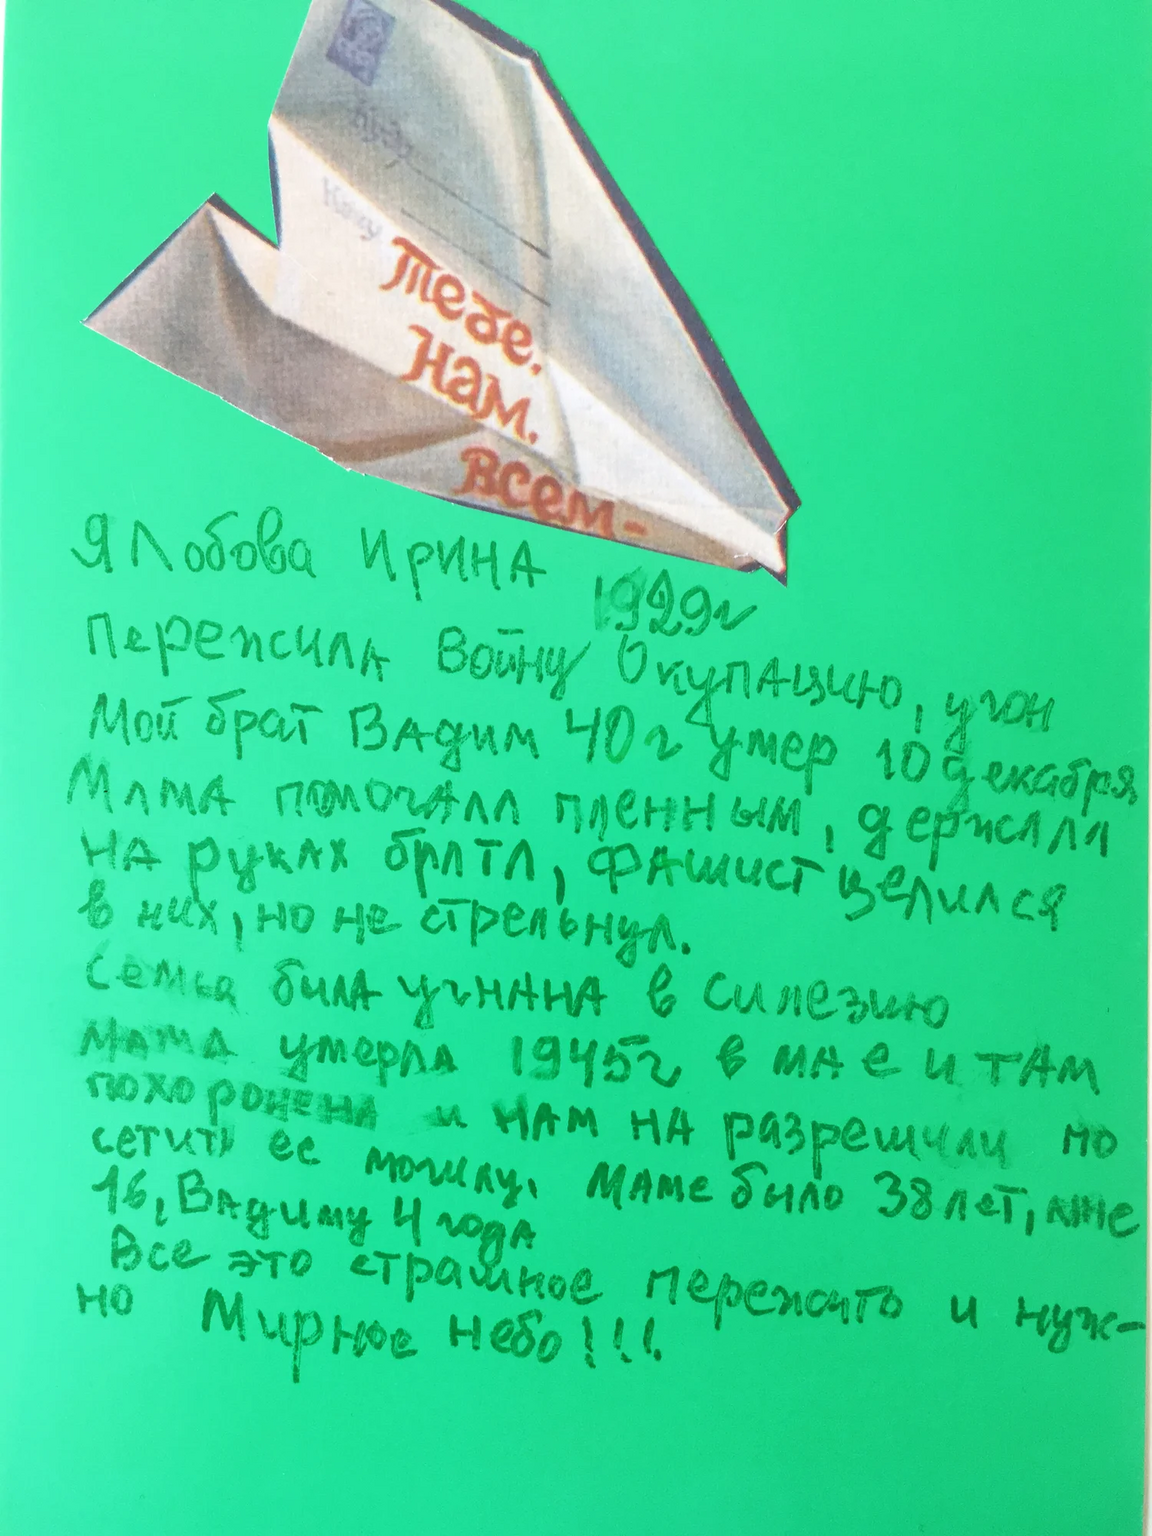 Куда
Кому
Тебе.
Нам.
Всем-
Я Лобова Ирина 1929г
Пережила Войну Окупацию, угон
Мой брат Вадим 40г умер 10 декабря
Мама помогала пленным, держала
на руках брата, фашист целился
в них, но не стрельнул.
Семья была угнана в Силезию
мама умерла 1945г в мае и там
похоронена и нам на разрешили по
сетить ее могилу. Маме было 38 лет, мне
16, Вадиму 4 года
Все это страшное пережить и нуж-
но Мирное небо!!!